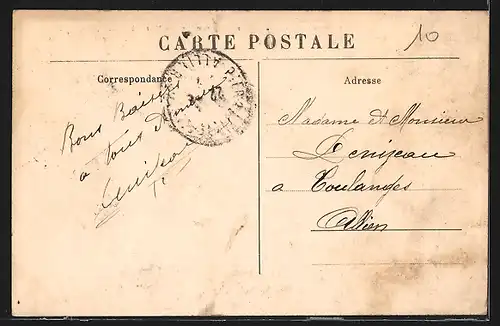 10
CARTE POSTALE
Correspondance
Adresse
Bons Baisers
a tous de
Madame et Monsieur
Denizeau
a Coulanges
Allier